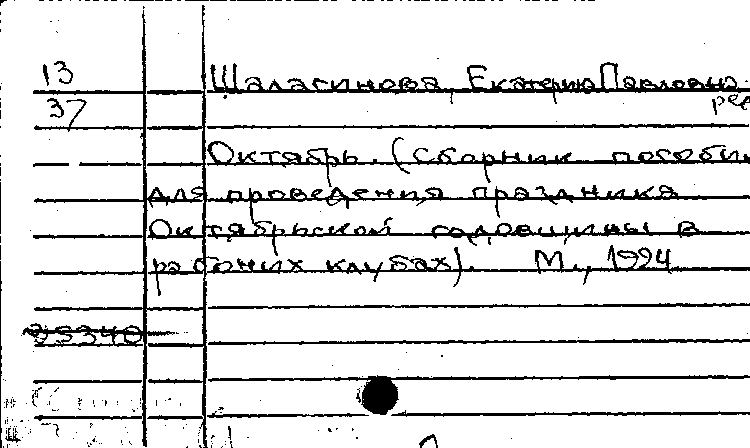 13
37
Шаласинова, Екатерина Павловна
ре
Октябрь. (Сборник пособи
для проведения праздника
Октябрьской годовщины в
рабочих клубах). М., 1924